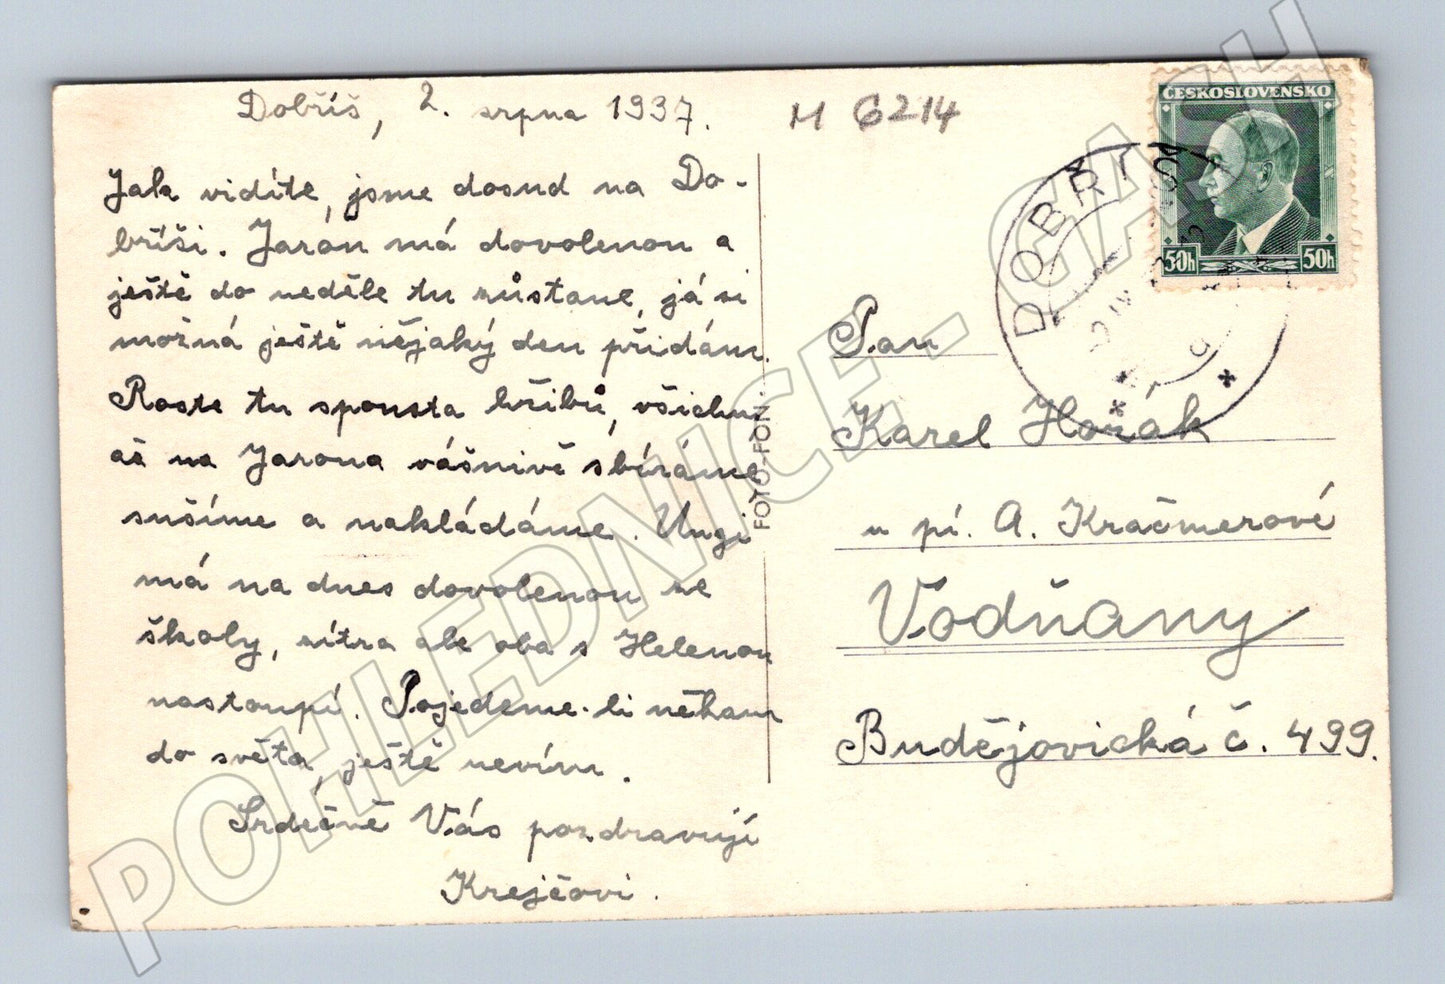 Dobříš, 2. srpna 1937.
M 6214
Jak vidíte, jsme dosud na Do-
bříši. Jarón má dovolenou a
ještě do neděle tu zůstane, já si
možná ještě nějaký den přidám.
Roste tu spousta hřibů, všichni
až na Jarona vášnivě sbíráme
sušíme a nakládáme. Ungi
má na dnes dovolenou ze
školy, zítra ale oba s Helenou
nastoupí. Pojedeme-li někam
do světa, ještě nevím.
Srdečně Vás pozdravují
Krejčovi.
FOTO-FON
ČESKOSLOVENSKO
50h 50h
DOBŘÍŠ
Pan
Karel Horák
u pí. A. Kračmerové
Vodňany
Budějovická č. 499.
POHLEDNICE - GACH